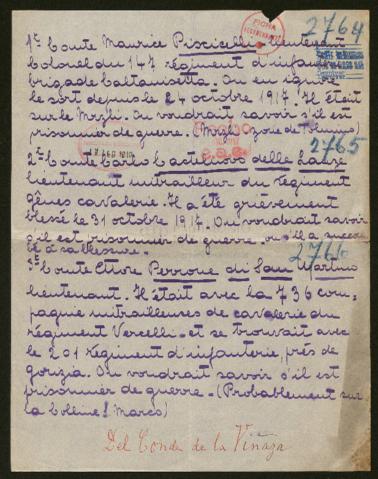 2764
1º Conte Maurice Piscicelli lieutenant
Colonel du 147 régiment d'infanterie
brigade Caltanissetta. On en ignore
le sort depuis le 24 octobre 1917. Il était
sur le Mrzli. On voudrait savoir s'il est
prisonnier de guerre. (Mrzli zone de Tolmino)
2765
2º Conte Castelnuovo delle Lanze
lieutenant mitrailleur du régiment
gênes cavalerie. Il a été grièvement
blessé le 31 octobre 1917. On voudrait savoir
s'il est prisonnier de guerre, ou s'il a succom
bé à sa blessure.
2766
3º Conte Ettore Perrone di San Martino
lieutenant. Il était avec la 736 com-
pagnie mitrailleuses de cavalerie du
régiment Vercelli - et se trouvait avec
le 201 régiment d'infanterie, près de
gorizia. On voudrait savoir s'il est
prisonnier de guerre. (Probablement sur
la colline S. Marco)
Del Conde de la Viñaza